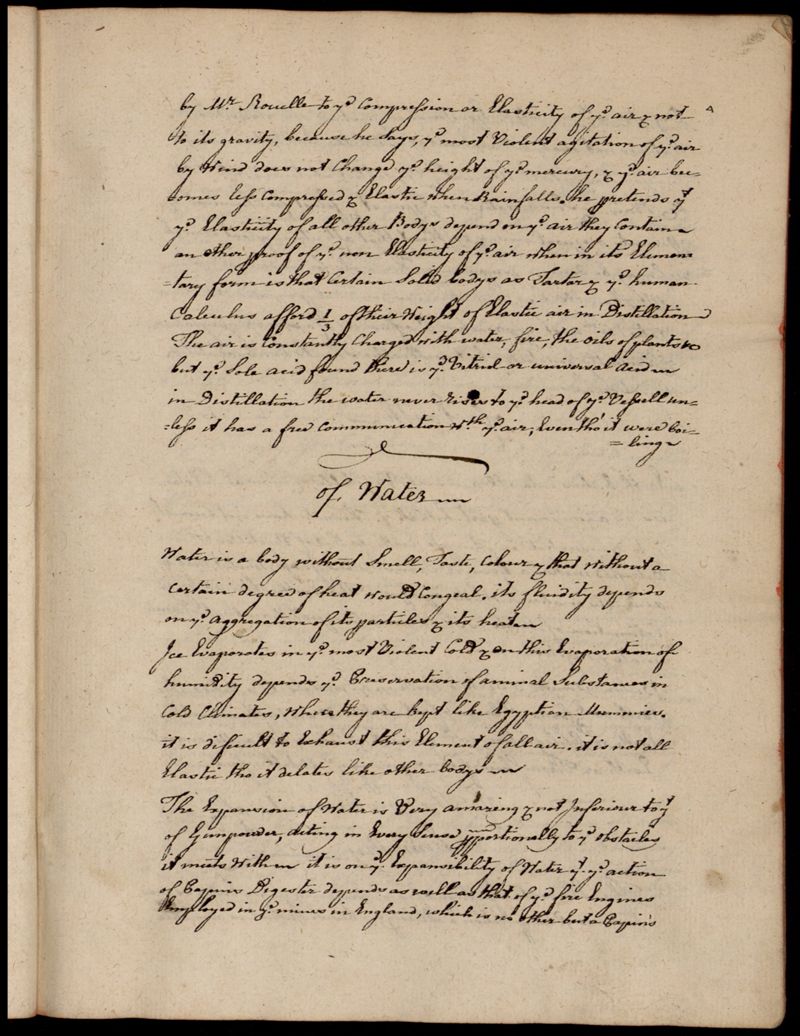 by Mr. Rouelle to ye. Compression or Elasticity of ye. air & not
to its gravity, because he says, ye. most Violent agitation of ye. air
by Wind does not Change ye. height of ye. mercury, & ye. air be-
comes less Compressed & Elastic when Rain falls. he pretends yt
ye. Elasticity of all other Bodys depend on ye. air they Contain
an other proof of ye. non Elasticity of ye. air when in its Elemen-
=tary form is that Certain Solid bodys as Tartar & ye. human
Calculus afford 1/3 of their Weight of Elastic air in Distillation
The air is Constantly Charged with water, fire, the oils of plants &c
but ye. Sole acid found there is ye. Vitriol or universal Acid
in Distillation the water never rises to ye. head of ye. Vessell un=
=less it has a free Communication Wth. ye. air, Even tho' it were boi=
=ling
of Water
Water is a body without Smell, Taste, Colour & that without a
Certain degree of heat would Congeal. its fluidity depends
on ye. aggregation of its particles & its heat
Ice Evaporates in ye. most Violent Cold & on this Evaporation of
humidity depends ye. Preservation of aminal Substances in
Cold Climates, where they are kept like Egyptian Mummies.
it is dificult to Exhaust this Element of all air. it is not all
Elastic tho it delates like other bodys
The Expansion of Water is Very amazing & not Inferiour to yt
of Gunpowder, acting in Every Sense pportionally to ye. obstacles
it meets With it is on ye. Expansibility of Water yt. ye. action
of Papins Digester depends as well as that of ye. fire Engines
Employed in ye. mines in England, which is no other but a Papin's